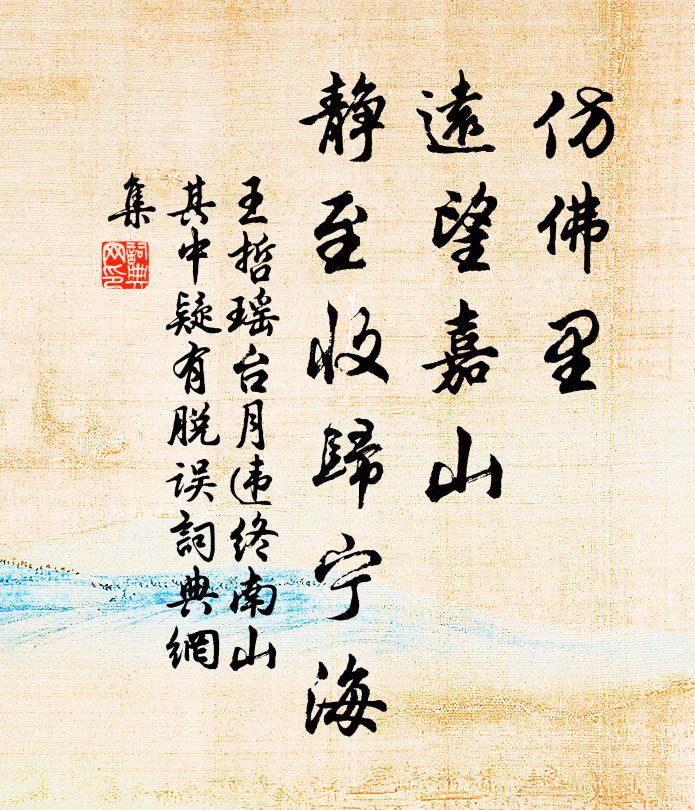 仿佛里
遠望嘉山
静至收歸宁海
王哲瑶台月违终南山
其中疑有脱误詞典網
集
詞典
网印